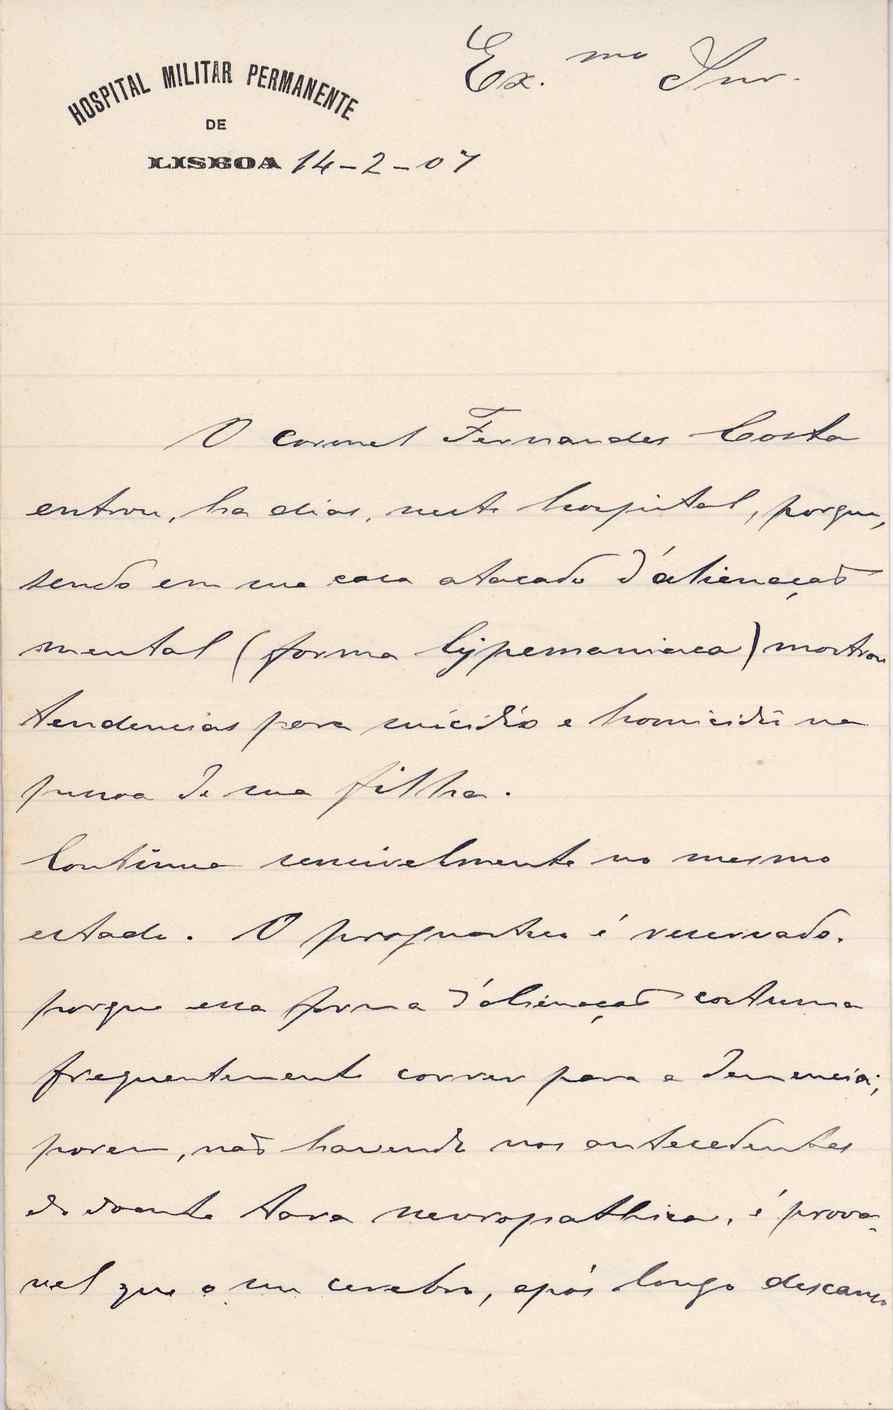 HOSPITAL MILITAR PERMANENTE
DE
LISBOA 14-2-07
Ex.mo Snr.
O coronel Fernandes Costa
entrou, ha dias, neste hospital, porque,
sendo em sua casa atacado d'alienação
mental (forma lypemaniaca) mostrou
tendencias para suicidio e homicidio na
pessoa de sua filha.
Continua sensivelmente no mesmo
estado. O prognostico é reservado.
porque essa forma d'alienação costuma
frequentemente correr para a demencia;
porem, não havendo nos antecedentes
do doente tara nevropathica, é prova-
vel que o seu cerebro, após longo descanso